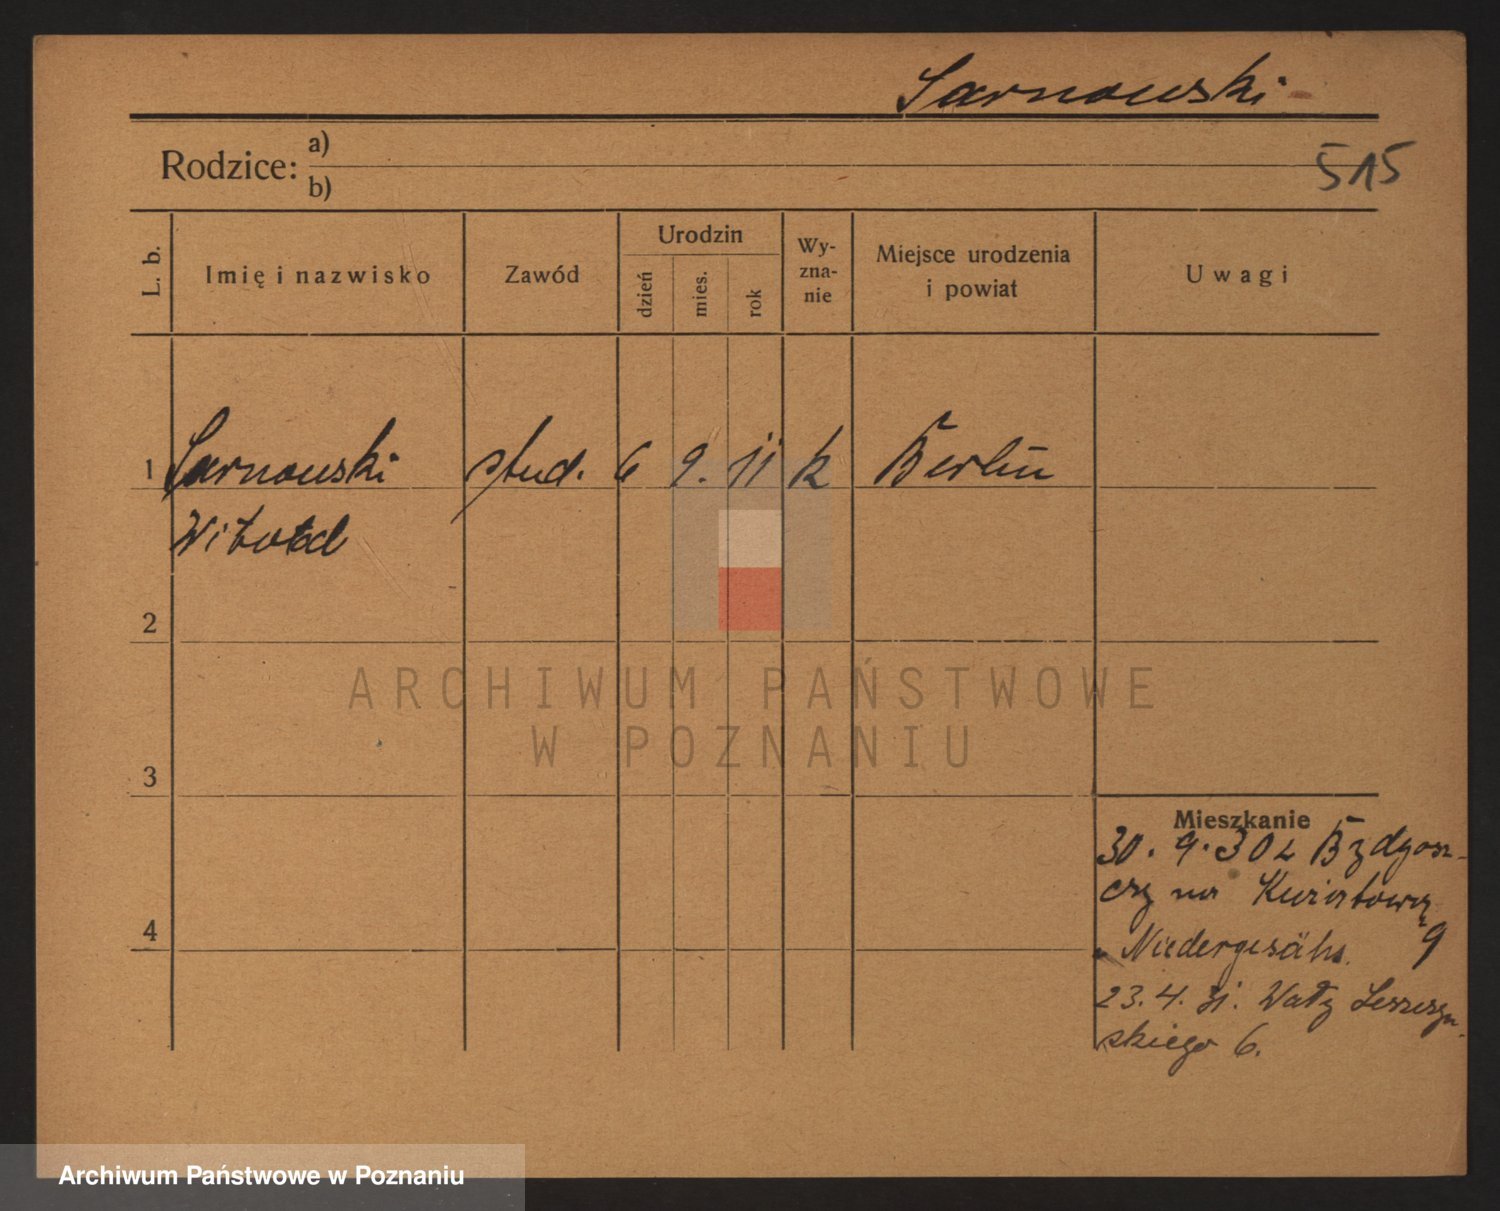 Sarnowski
Rodzice:
a)
b)
515
L. b.
Imię i nazwisko
Zawód
Urodzin
dzień
mies.
rok
Wy-
zna-
nie
Miejsce urodzenia
i powiat
Uwagi
1 Sarnowski stud. 6 9. 11 k Berlin
Witold
2
ARCHIWUM PAŃSTWOWE
W POZNANIU
3
Mieszkanie
30. 9. 30 z Bydgosz-
czy na Kwiatową
9
4
23. 4. 31. Wały Leszczyń-
skiego 6.
Archiwum Państwowe w Poznaniu